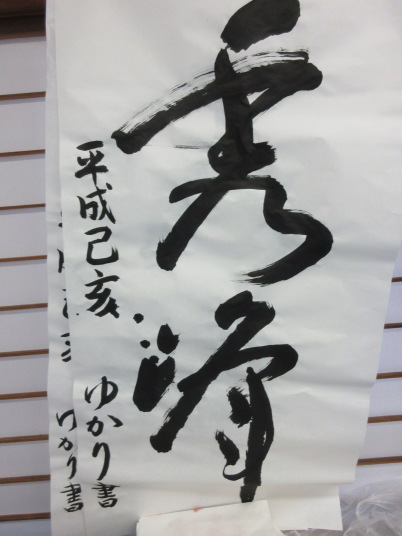 秀峰
平成己亥 ゆかり書
ゆかり書